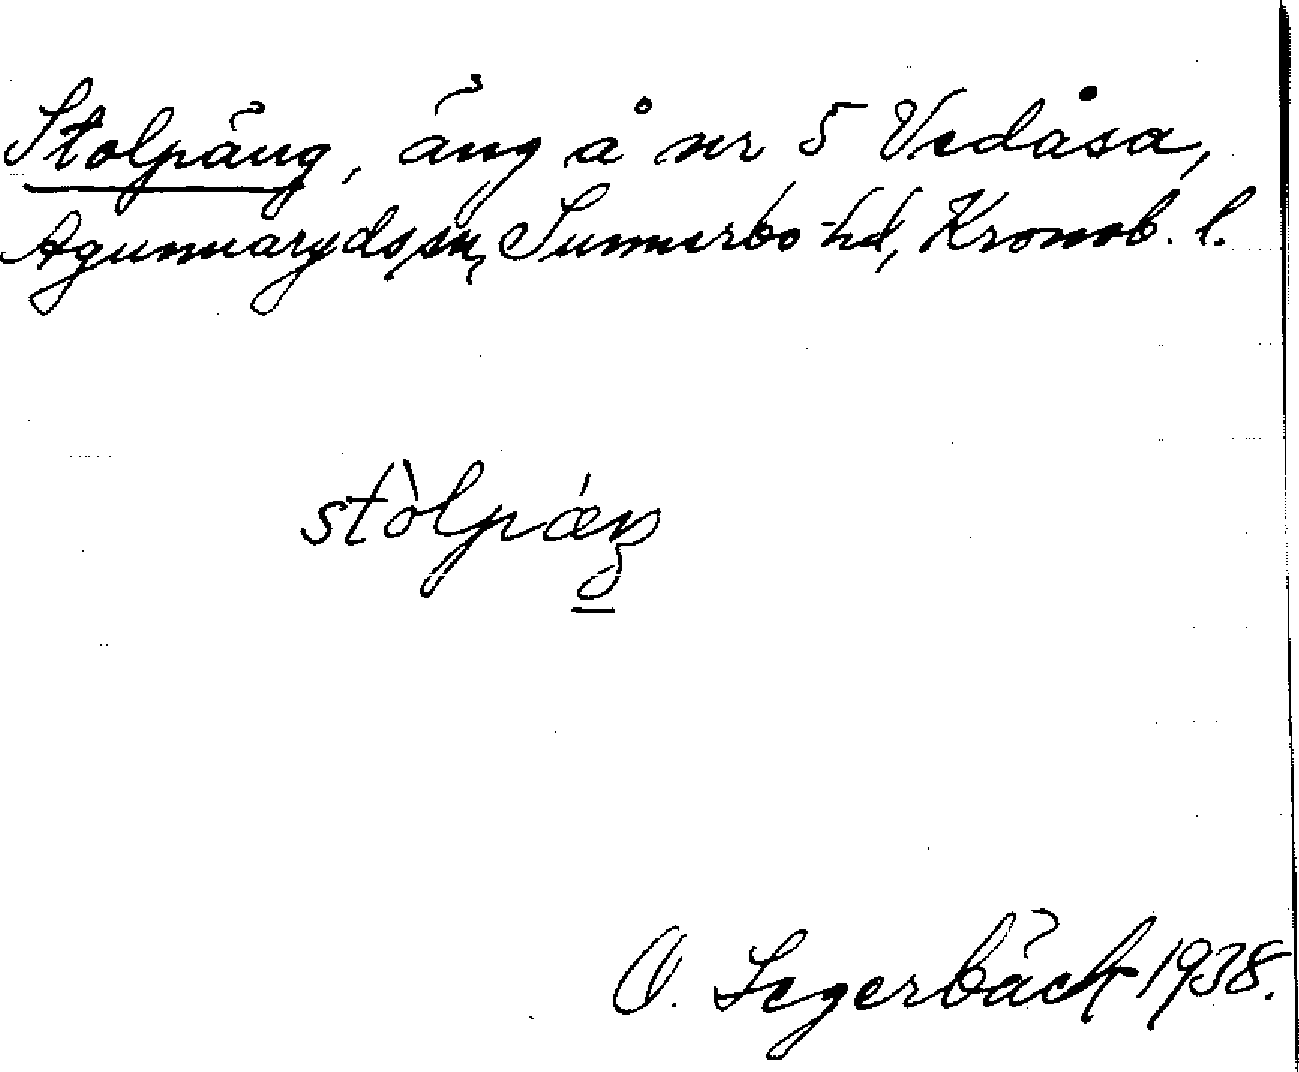 Stolpäng, äng å nr 5 Vedåsa,
Agunnaryds sn, Sunnerbo hd, Kronob. l.
stòlpǽŋ
O. Segerbäck 1938.